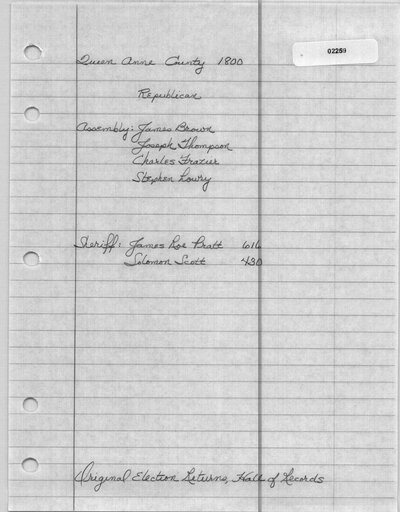 02259
Queen Anne County 1800
Republican
Assembly: James Brown
Joseph Thompson
Charles Frazier
Stephen Lowry
Sheriff: James Roe Pratt 616
Solomon Scott 430
Original Election Returns, Hall of Records